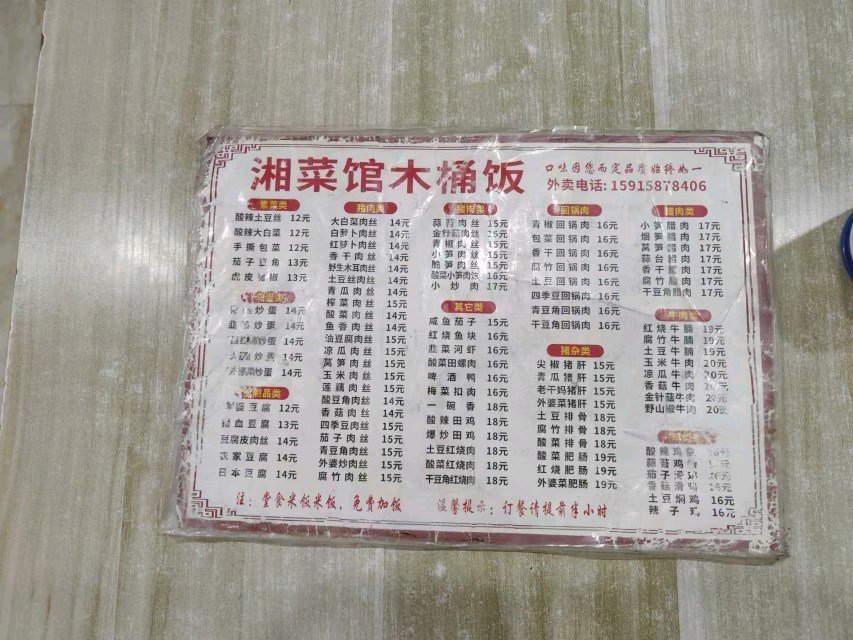 湘菜馆木桶饭
口味因您而定品质始终如一
外卖电话:15915878406
素菜类
酸辣土豆丝 12元
酸辣大白菜 12元
手撕包菜 12元
茄子豆角 13元
虎皮 椒 13元
炒蛋 14元
炒蛋 14元
炒蛋 14元
炒蛋 14元
外婆菜炒蛋 14元
制品类
豆腐 12元
猪血豆腐 13元
豆腐皮肉丝 14元
农家豆腐 14元
日本豆腐 14元
猪肉类
大白菜肉丝 14元
白萝卜肉丝 14元
红萝卜肉丝 14元
香干肉丝 14元
野生木耳肉丝 14元
土豆丝肉丝 14元
青瓜肉丝 14元
榨菜肉丝 15元
酸菜肉丝 14元
鱼香肉丝 14元
油豆腐肉丝 14元
凉瓜肉丝 14元
莴笋肉丝 14元
玉米肉丝 14元
莲藕肉丝 14元
酸豆角肉丝 14元
香菇肉丝 14元
四季豆肉丝 15元
茄子肉丝 15元
青豆角肉丝 15元
外婆炒肉丝 15元
腐竹肉丝 15元
猪肉类
蒜苔肉丝 15元
金针菇肉丝 15元
青椒肉丝 15元
小笋肉丝 15元
脆笋肉丝 15元
酸菜小笋肉沫 16元
小炒肉 17元
其它类
咸鱼茄子 15元
红烧鱼块 16元
韭菜河虾 16元
酸菜田螺肉 16元
啤酒鸭 16元
梅菜扣肉 16元
一碗香 18元
酸辣田鸡 18元
爆炒田鸡 18元
土豆红烧肉 18元
酸菜红烧肉 18元
干豆角红烧肉 18元
回锅肉
青椒回锅肉 16元
包菜回锅肉 16元
香干回锅肉 16元
腐竹回锅肉 16元
土豆回锅肉 16元
四季豆回锅肉 16元
青豆角回锅肉 16元
干豆角回锅肉 16元
猪杂类
尖椒猪肝 15元
青瓜猪肝 15元
老干妈猪肝 15元
外婆菜猪肝 15元
土豆排骨 18元
腐竹排骨 18元
酸菜排骨 18元
酸菜肥肠 19元
红烧肥肠 19元
外婆菜肥肠 19元
腊肉类
小笋腊肉 17元
烟笋腊肉 17元
莴笋腊肉 17元
蒜苔腊肉 17元
香干腊肉 17元
腐竹腊肉 17元
干豆角腊肉 17元
牛肉类
红烧牛腩 19元
腐竹牛腩 19元
土豆牛腩 19元
玉米牛肉 20元
凉瓜牛肉 20元
香菇牛肉 20元
金针菇牛肉 20元
野山椒牛肉 20元
酸辣鸡 16元
蒜苔鸡 16元
茄子滑鸡 16元
香菇滑鸡 16元
土豆焖鸡 16元
辣子鸡 16元
注：堂食米饭米饭，免费加饭
温馨提示：订餐请提前半小时